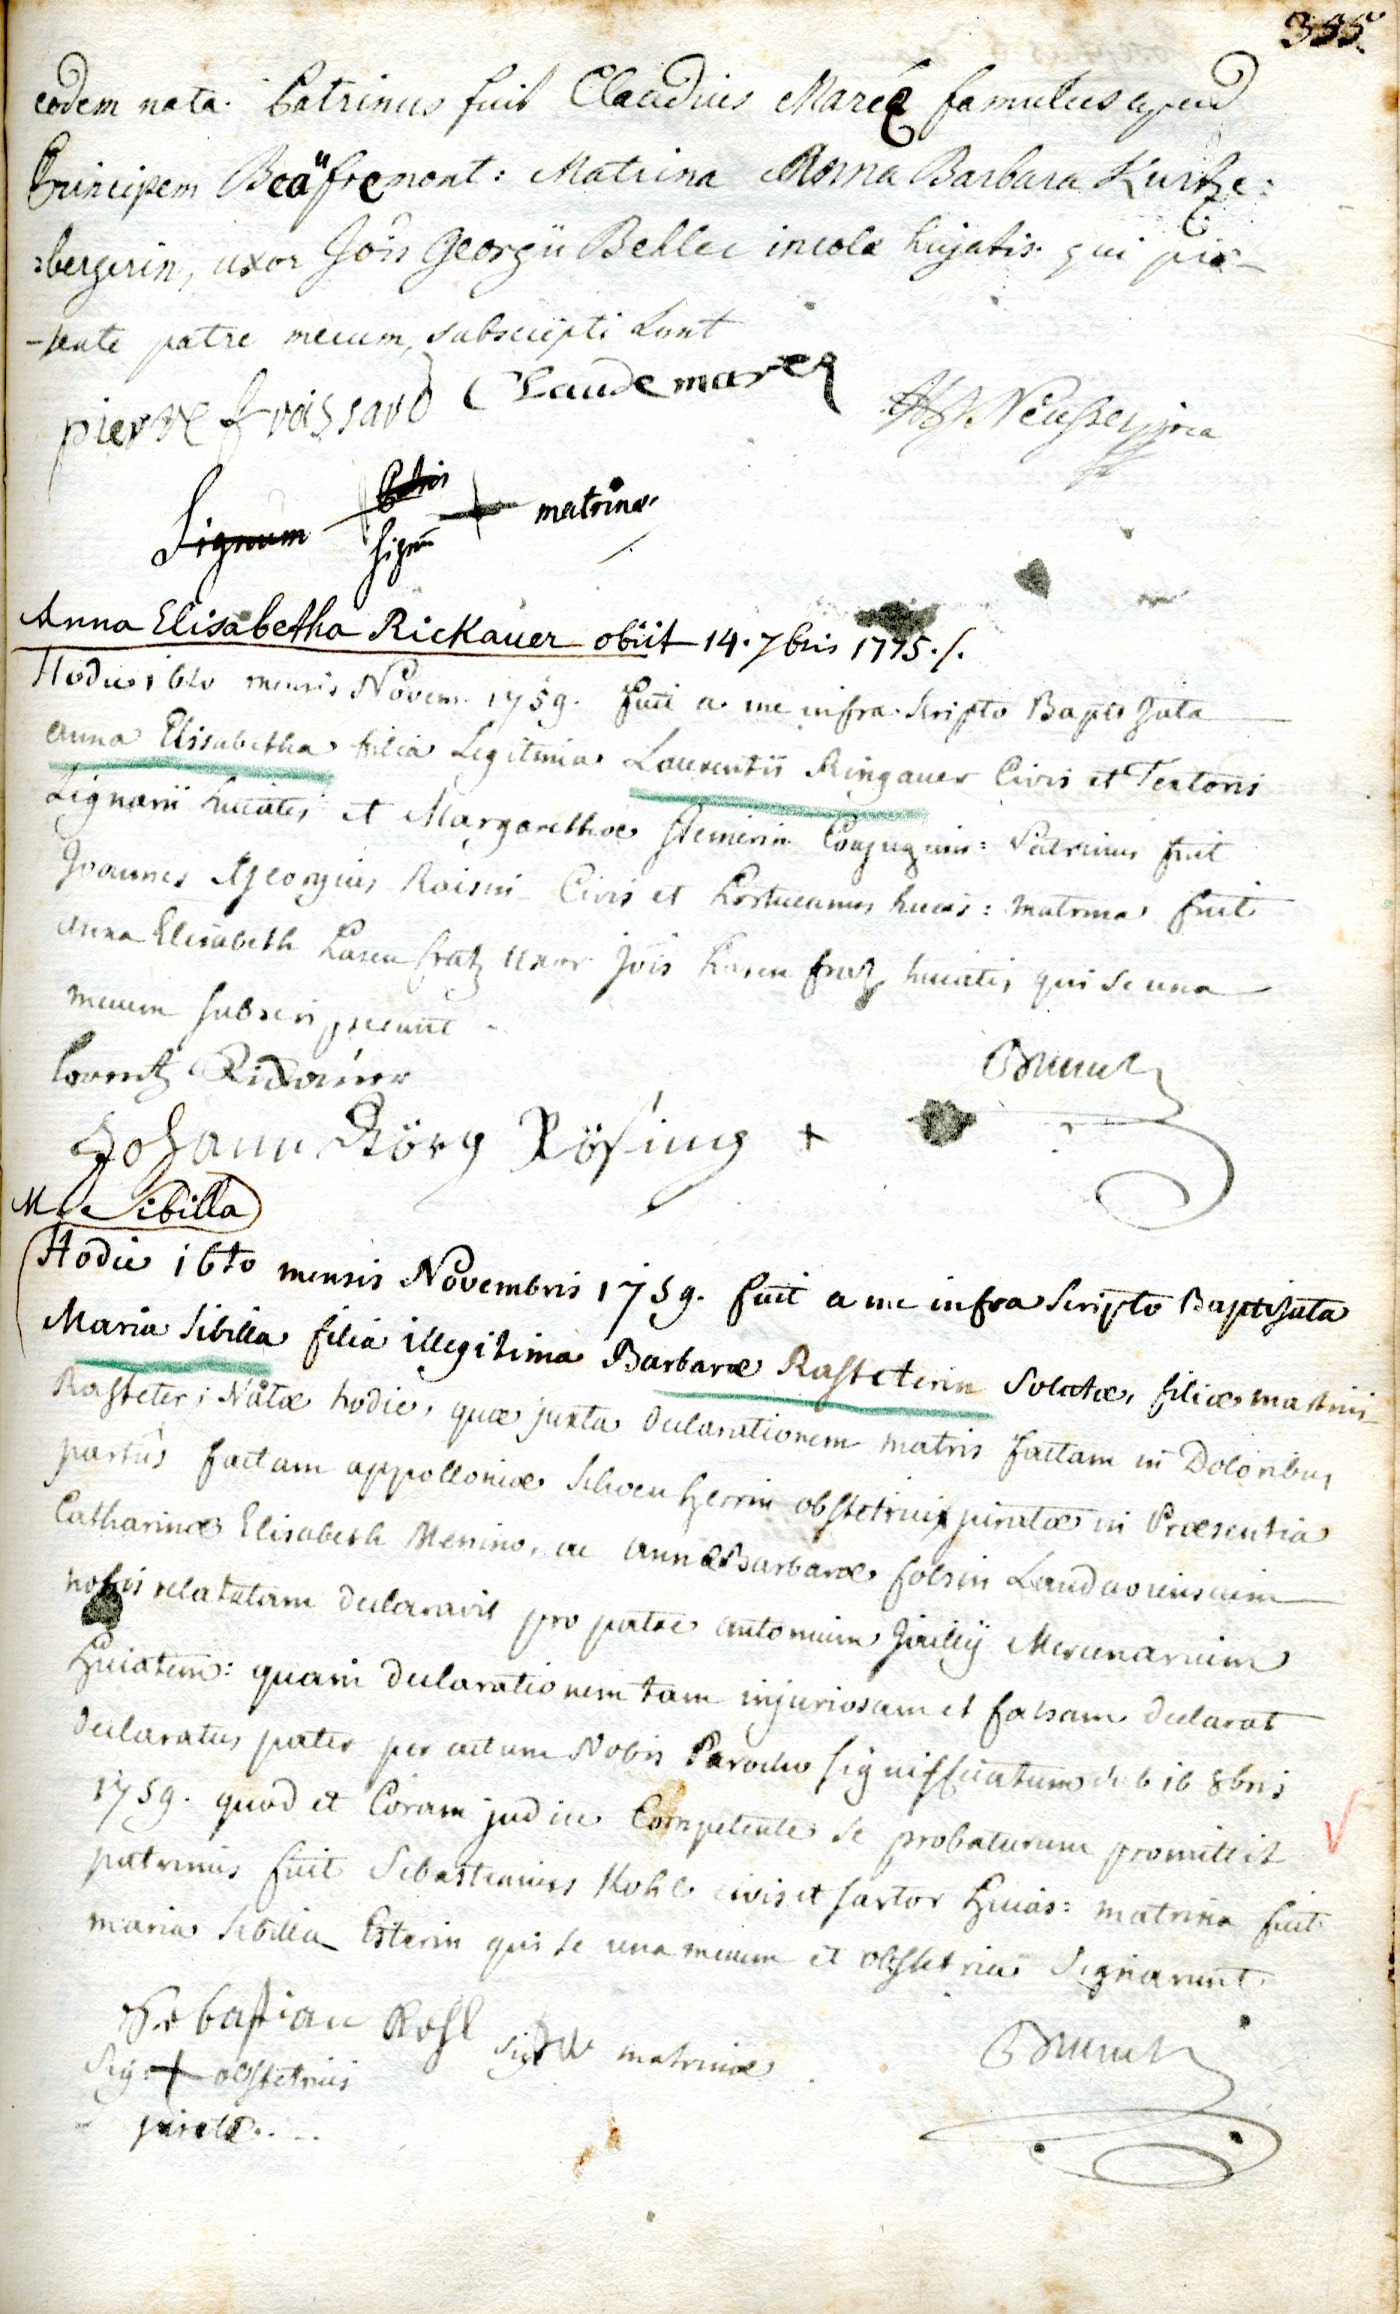 355.
eodem nata. Patrinus fuit Claudius Mareq famulus apud
Principem Beaüfremont: Matrina Anna Barbara Kurtze:
:bergerin, uxor Jois Georgii Behle incolæ hujatis. qui præ-
-sente patre mecum subscripti sunt
pierre froissard Claude mareq
Signum Patris
Sign matrinæ
Anna Elisabetha Rickauer obiit 14. 7bris 1775.
Hodie 16to mensis Novem. 1759. fuit a me infra scripto Baptizata
anna Elisabetha filia Legitima Laurentii Ringauer Civis et Textoris
Lignarii huiatis et Margarethæ Conjugum: Patrinus fuit
Joannes Georgius Roisin Civis et hortulanus huias: matrina fuit
anna Elisabeth Hasenfratz uxor Jois Hasenfratz huiatis, qui se una
mecum subscripserunt
Lorentz Rickauer
Johann Görg Rösing +
M. Sibilla
Hodie 16to mensis Novembris 1759. fuit a me infra Scripto Baptizata
Maria Sibilla filia illegitima Barbaræ Rasteterin Solutæ, filiæ martini
Rasteter; Natæ hodie, quæ juxta declarationem matris factam in Doloribus
partûs factam appolloniæ Schoenherrin obstetrici juratæ in Præsentia
Catharinæ Elisabeth Menino, ac annæ Barbaræ folsin Landaviensium
nobis relatatam declaravit pro patre antonium Mercenarium
huiatem: quam declarationem tam injuriosam et falsam declarat
declaratus pater per actum Nobis Parocho significatum de 16 8bris
1759. quod et Coram judice Competente se probaturum promittit
patrinus fuit Sebastianus Kohl civis et sartor huias: matrina fuit
maria Sibilla Esterin qui se una mecum et obstetrice signarunt.
Sebastian Kohl Sig matrinæ
Sig: + obstetricis
juratæ...